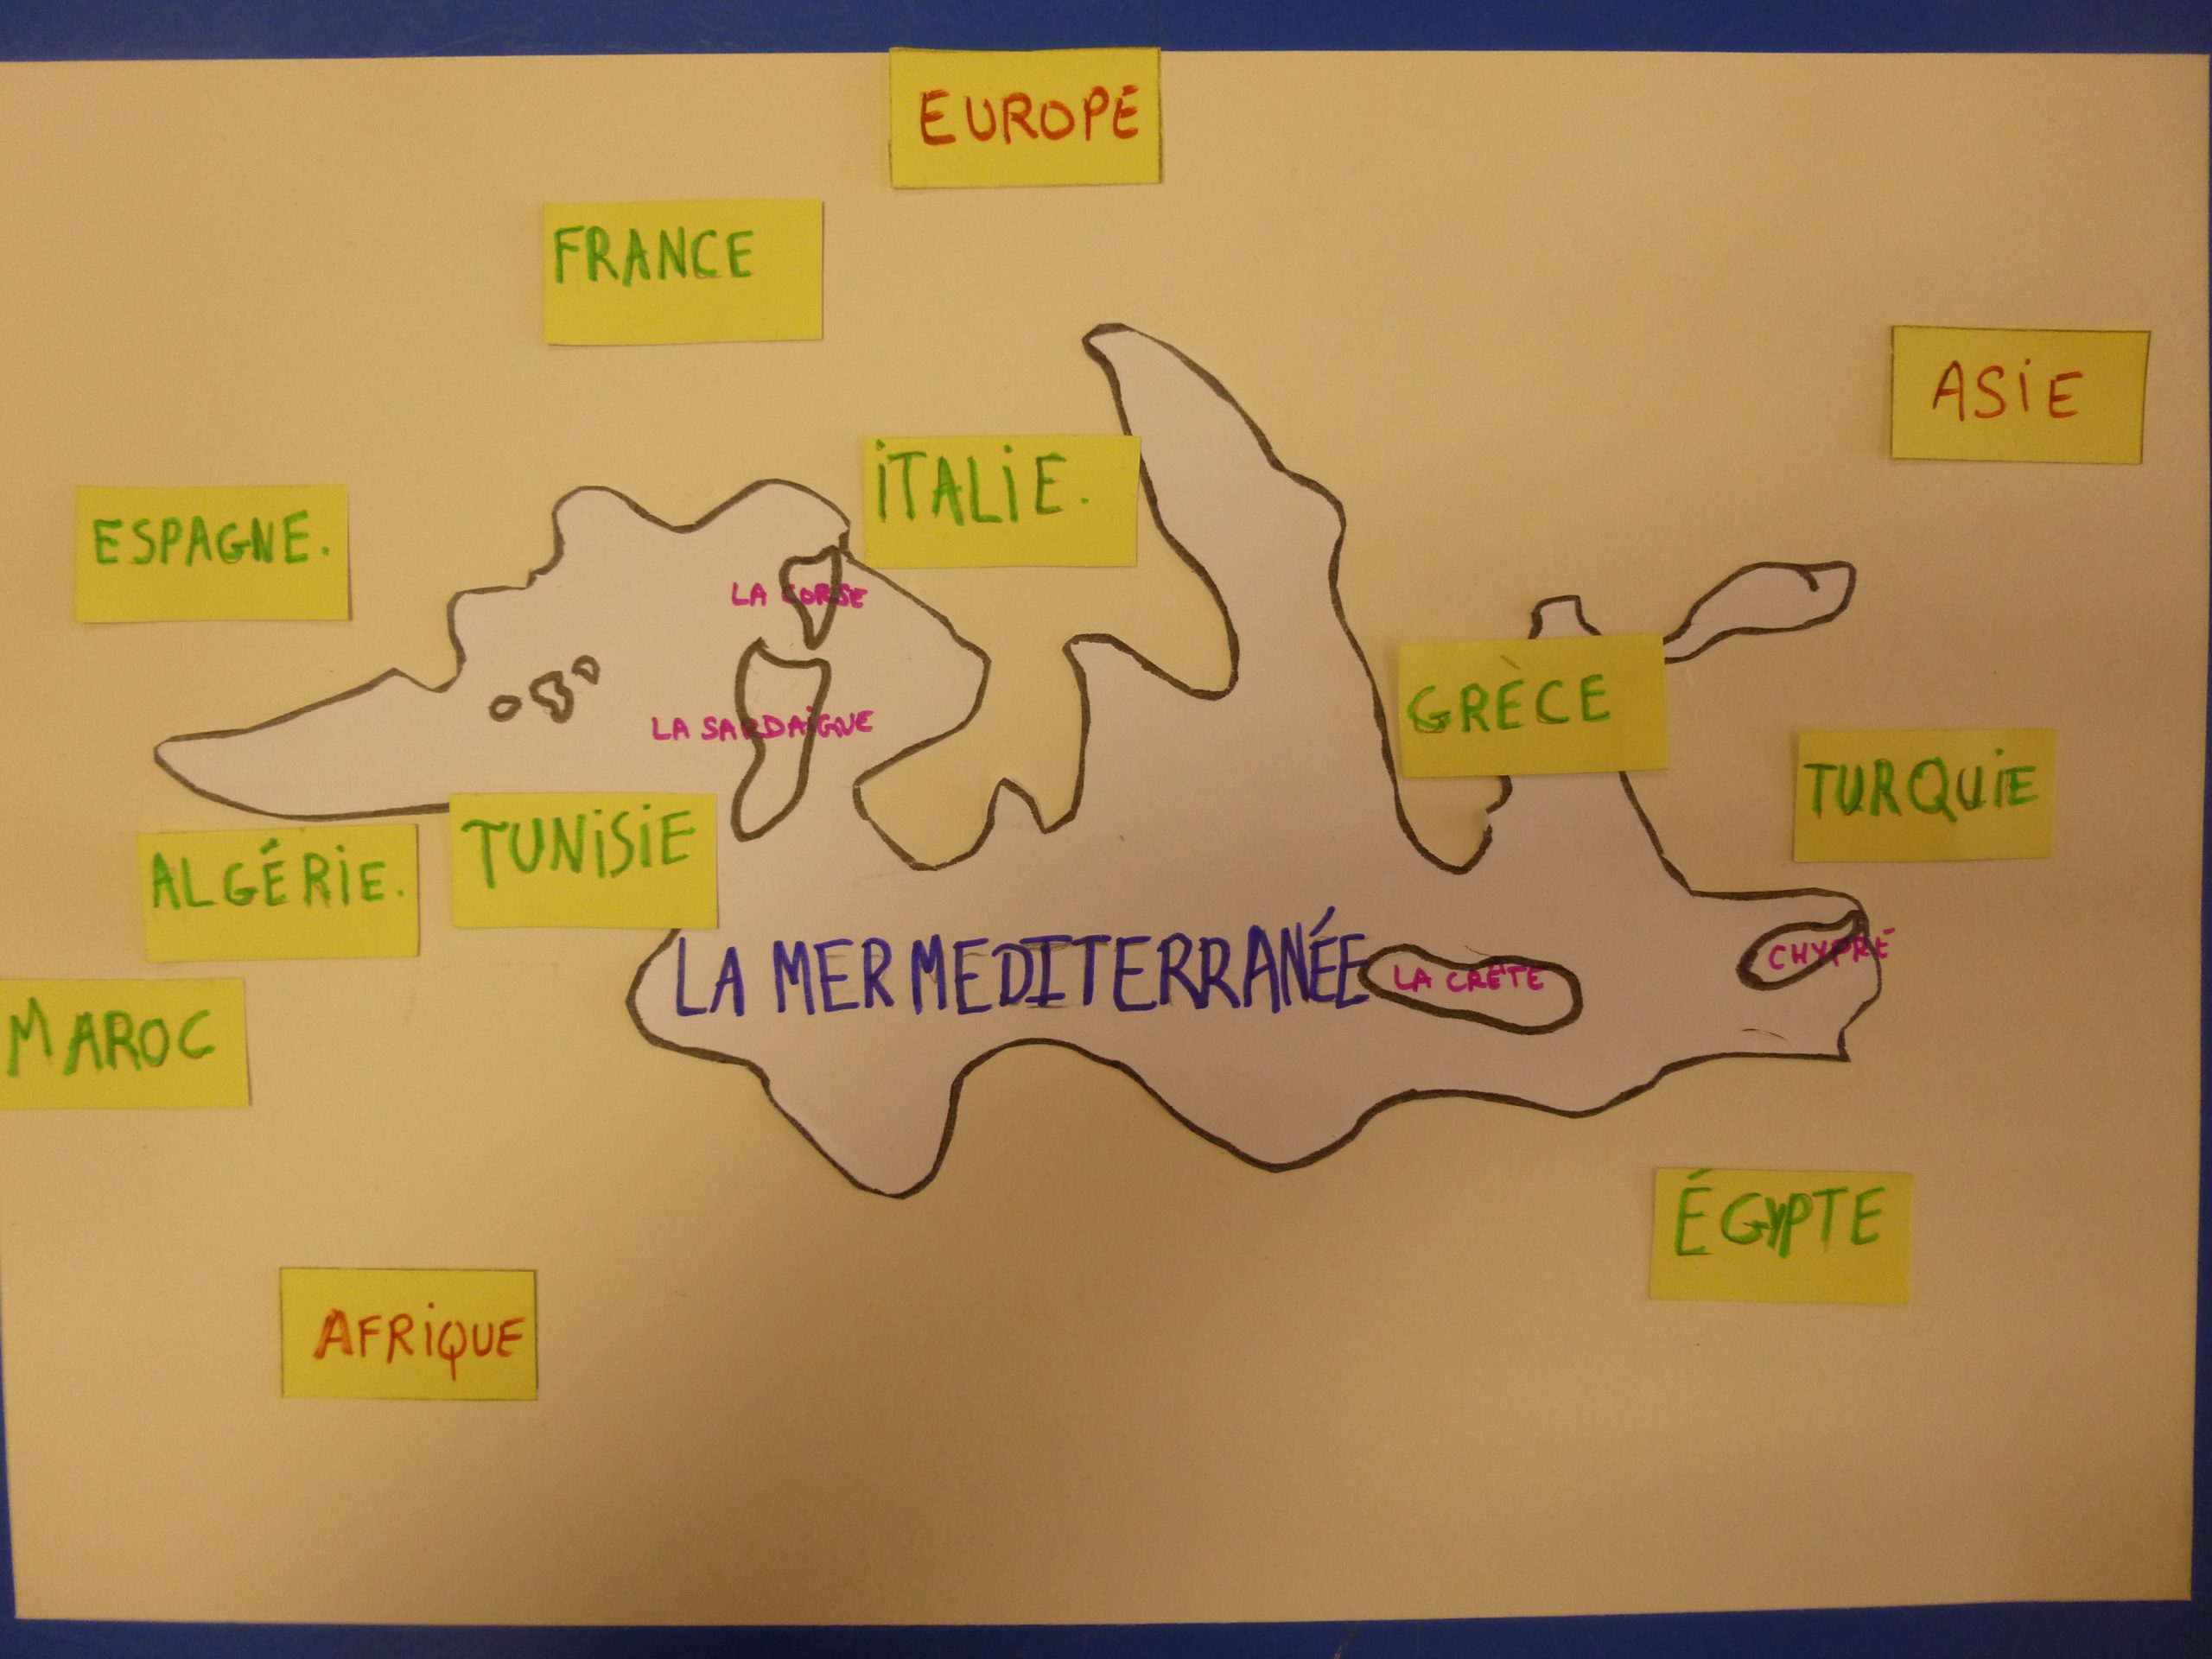 EUROPE
FRANCE
ASiE
iTALiE.
ESPAGNE.
LA CORSE
GRÈCE
LA SARDAiGNE
TURQUiE
TUNiSiE
ALGÉRiE.
LA MER MEDITERRANÉE
LA CRÈTE
CHYPRE
MAROC
ÉGYPTE
AFRiQUE